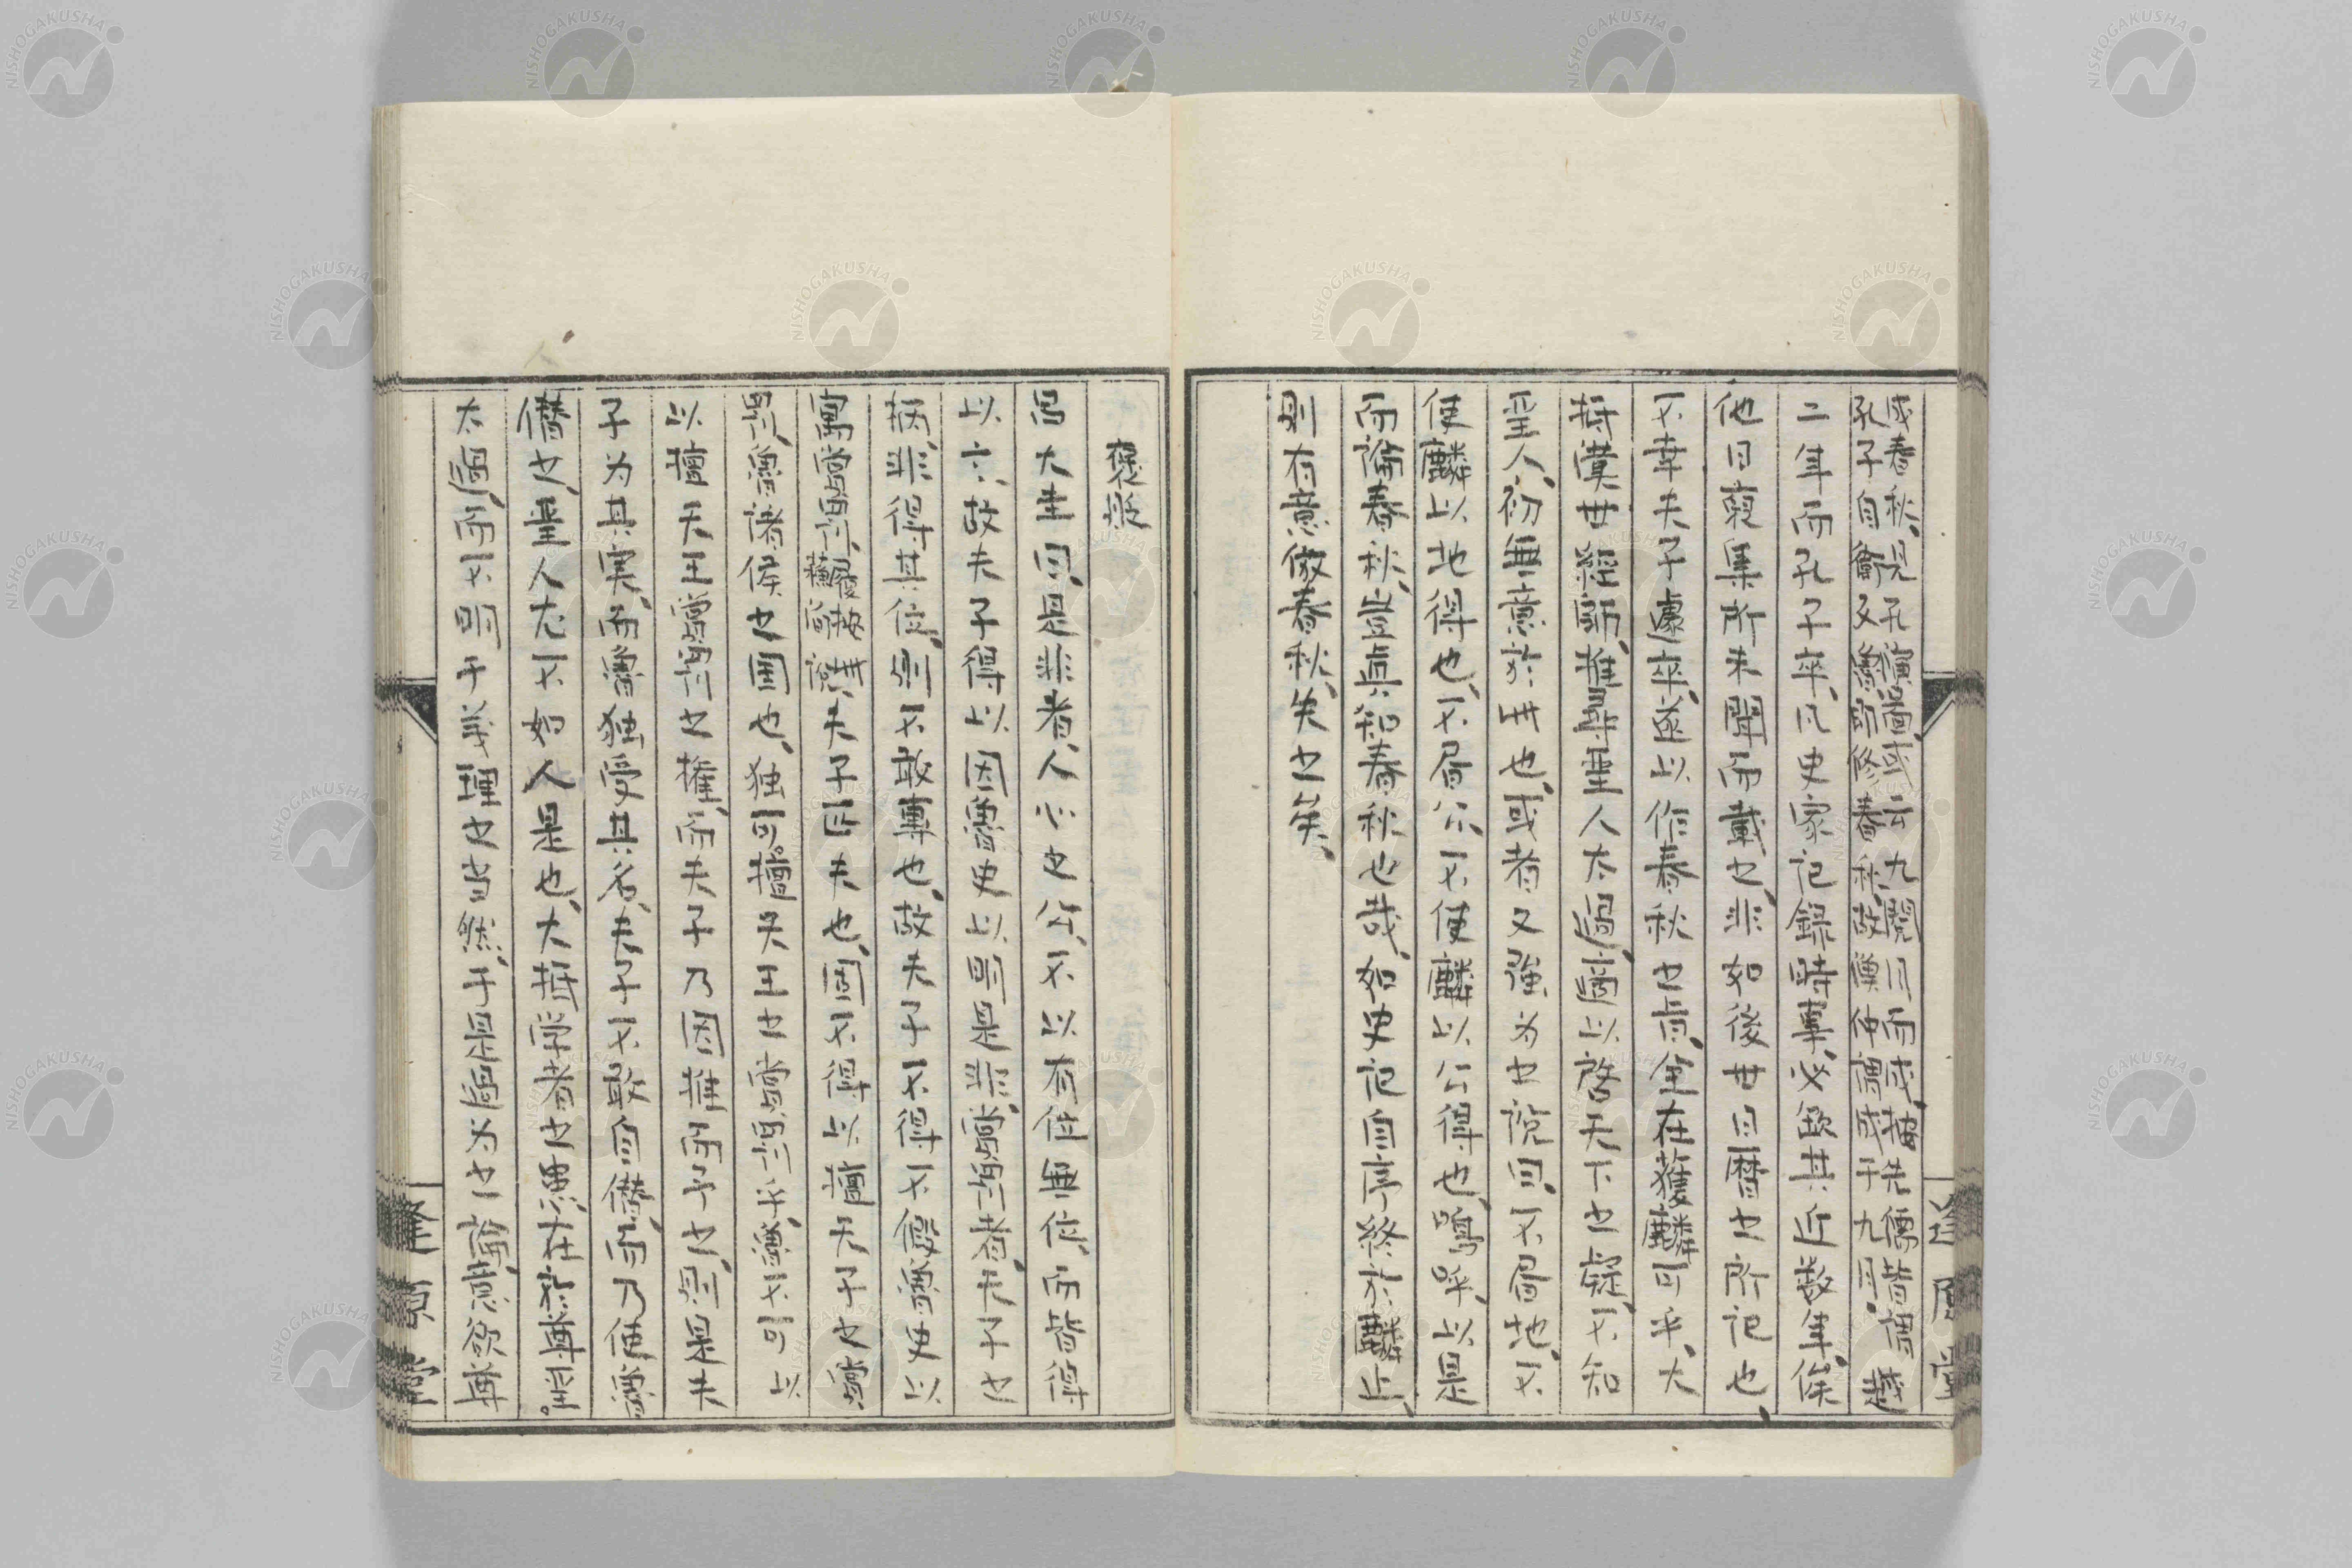 成春秋、見孔演圖、或云九閱月而成、按先儒皆謂、感
孔子自衞反魯、卽修春秋、故僕仲謂成于九月、
二年而孔子卒、凡史家記録時事、必欽其近數年、俟
他日裒集所未聞而載之、非如後世日曆之所記也、
不幸夫子遽卒、遂以作春秋之歳、全在獲麟可乎、大
抵漢世經師、雖尊聖人太過、適以啓天下之疑、不知
聖人、初無意於此也、或者又強為之説曰、不届地、不
使麟以地得也、不届公、不使麟以公得也、嗚呼、以是
而論春秋、豈眞知春秋也哉、如史記自序、終於麟止、
則有意倣春秋、失之矣、
褒貶
呂大圭曰、是非者、人心之公、不以有位無位、而皆得
以言、故夫子得以因魯史以明是非、賞罰者、天子之
柄、非得其位、則不敢專也、故夫子不得不假魯史以
寓賞罰、蘇明允説、夫子匹夫也、固不得以擅天子之賞
罰、魯諸侯之國也、独可擅天王之賞罰乎、魯不可以
以擅天王賞罰之權、而夫子乃因推而予之、則是夫
子為其実、而魯独受其名、夫子不敢自僭、而乃使魯
僭之、聖人尤不如人是也、大抵学者之患、在於尊聖。
太過、而不明于義理之当然、于是過為之論、意欲尊
逢原堂
逢原堂